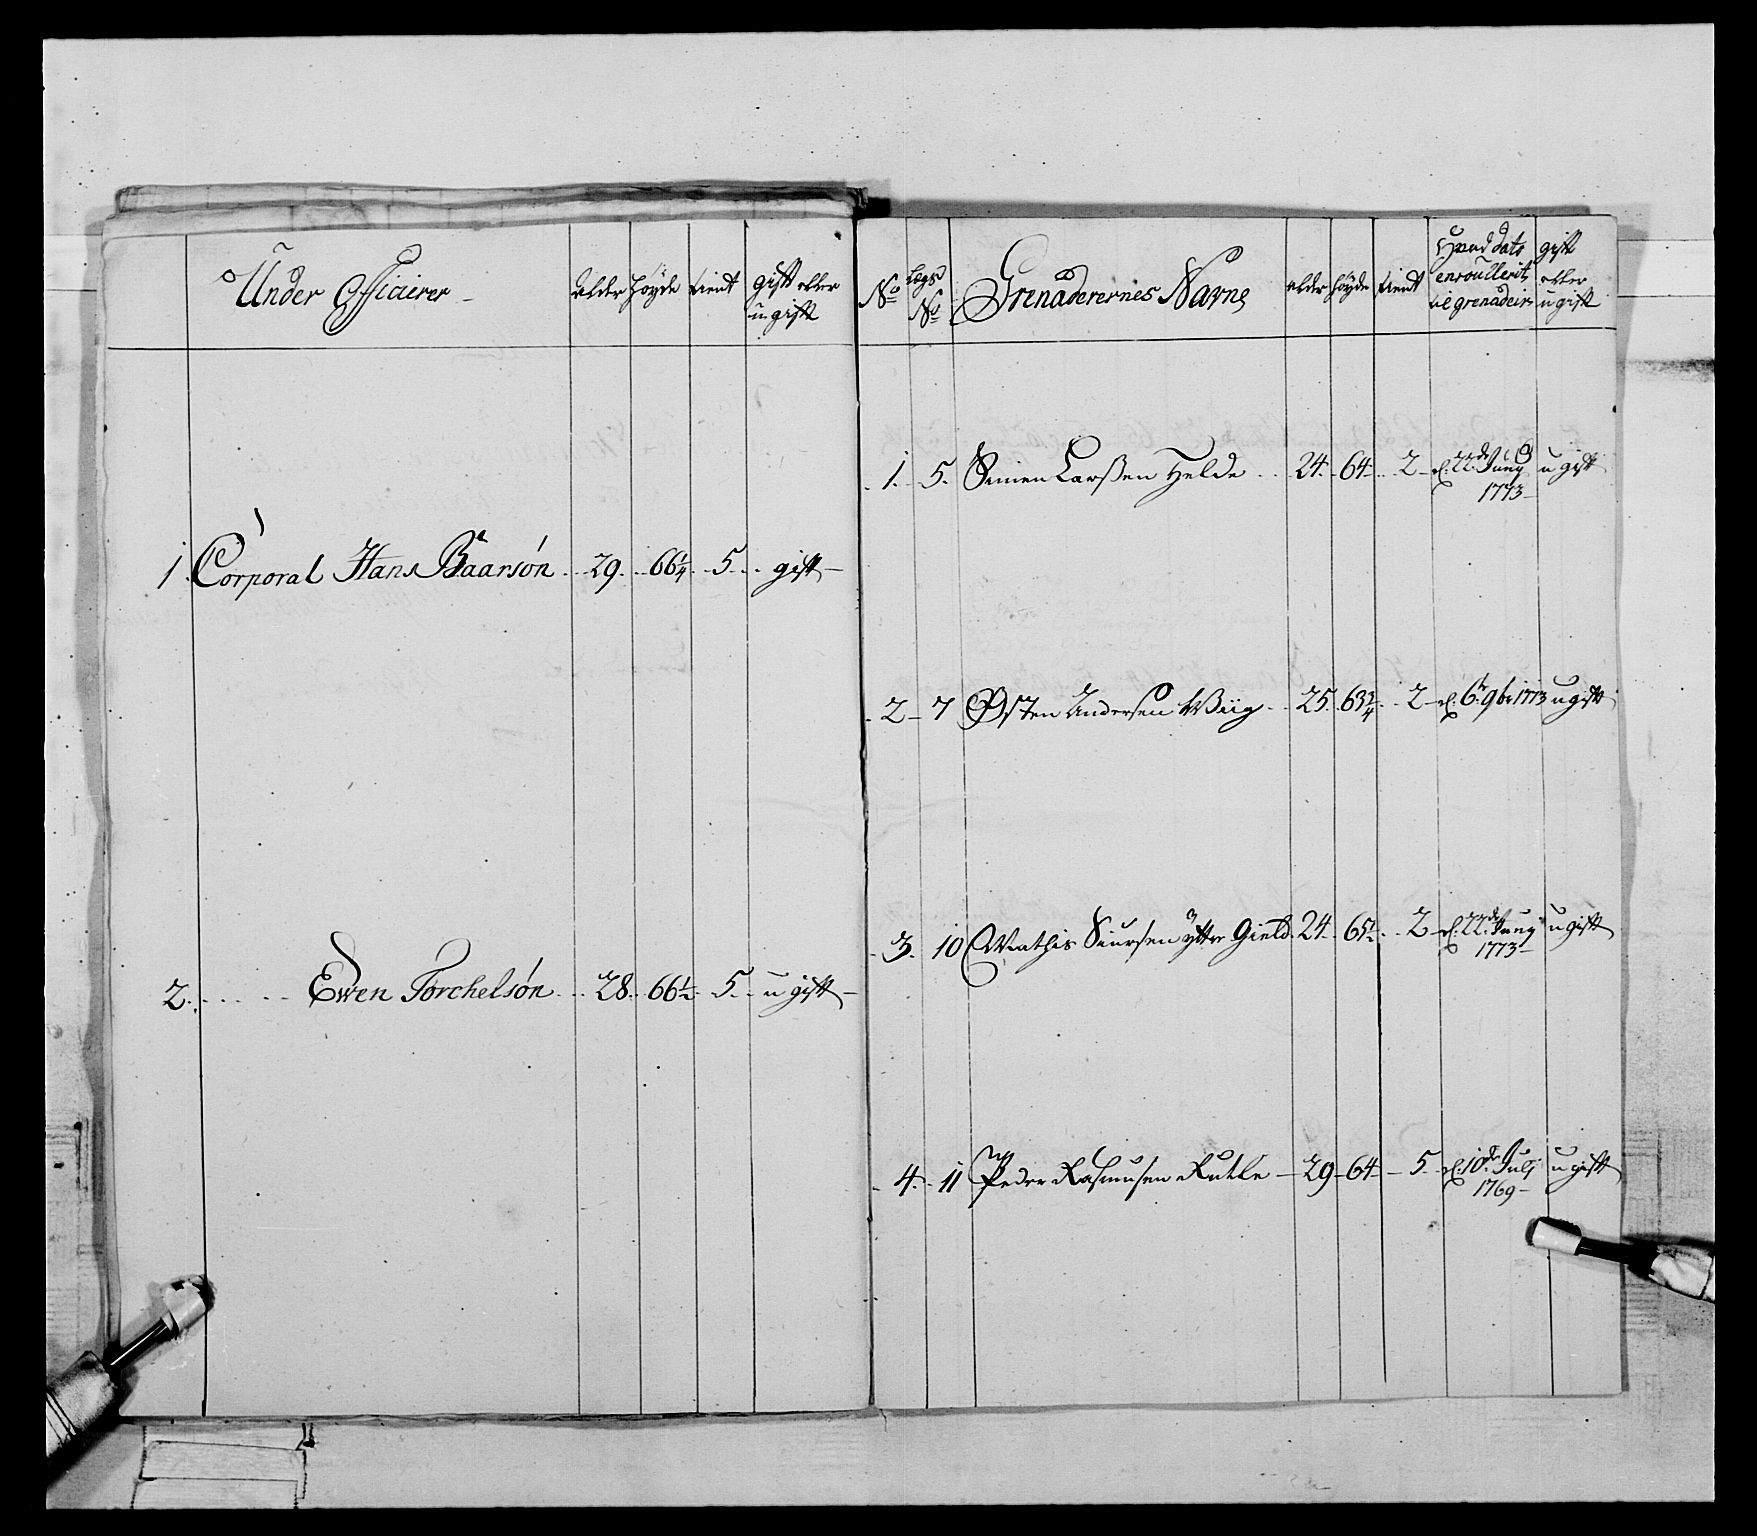 Under Officierer
alder høyde tient gift eller
u-gift
1. Corporal Hans Baarsøn 29. 66 1/4 5. gift
2. Ewen Torchelsøn 28. 66 1/2 5. u gift
No Lægs No Grenaderernes Navne alder høyde tient
Hvad dato
enroullerit
til grenader
gift
eller
u gift
1. 5. Simen Larßen Helde 24. 64 2 d. 22de Juny u gift
1773
2 7 Østen Andersen Wiig 25. 63 3/4 2 d. 6t 9br 1773 u gift
3. 10 Mathis Siursen ytter Gield 24 65 1/2 2 d. 22de Juny u gift
1773
4. 11 Peder Rasmusen Rutle 29 64 5 d. 10de Julj u gift
1769